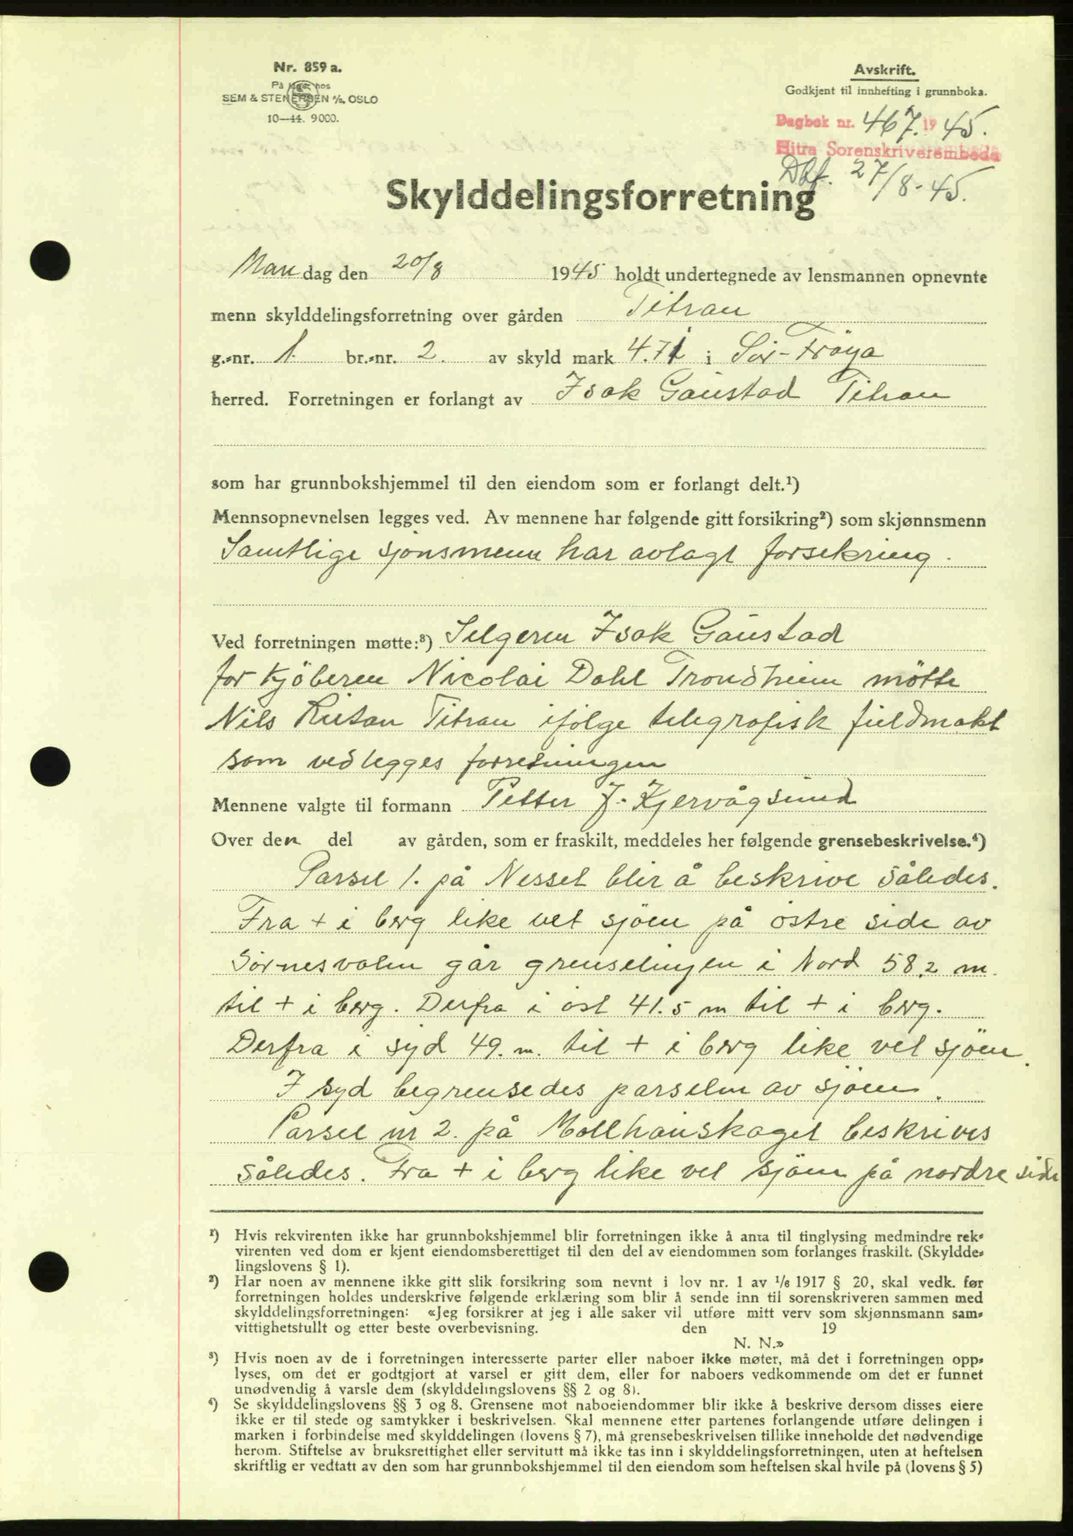 Nr. 859 a.
På lager hos
SEM & STENERSEN A/S, OSLO
10—44. 9000.
Avskrift.
Godkjent til innhefting i grunnboka.
Dagbok nr. 467. 1945.
Hitra Sorenskriverembede
Dbf. 27/8-45.
Skylddelingsforretning
Mandag den 20/8 1945 holdt undertegnede av lensmannen opnevnte
menn skylddelingsforretning over gården Titran
g.-nr. 1. br.-nr. 2. av skyld mark 4.71 i Sör-Fröya
herred. Forretningen er forlangt av Isak Gaustad Titran
som har grunnbokshjemmel til den eiendom som er forlangt delt.¹)
Mennsopnevnelsen legges ved. Av mennene har følgende gitt forsikring²) som skjønnsmenn
Samtlige sjönsmenn har avlagt forsekring.
Ved forretningen møtte:³) Selgeren Isak Gaustad
for Kjöberen Nicolai Dahl Trondheim mötte
Nils Titran ifölge telegrafisk fuldmakt
som vedlegges forretningen
Mennene valgte til formann Petter J. Kjervågsund
Over den del av gården, som er fraskilt, meddeles her følgende grensebeskrivelse.⁴)
Parsel 1. på Nesset blir å beskrive således.
Fra + i berg like vet sjöen på östre side av
Sörnesvalen går grenselinjen i Nord 58,2 m.
til + i berg. Derfra i öst 41.5 m til + i berg.
Derfra i syd 49. m. til + i berg like vet sjöen.
I syd begrensedes parselen av sjöen.
Parsel nr 2. på Mollhauskaget beskrives
således. Fra + i berg like vet sjöen på nordre side
¹) Hvis rekvirenten ikke har grunnbokshjemmel blir forretningen ikke å anta til tinglysing medmindre rek-
virenten ved dom er kjent eiendomsberettiget til den del av eiendommen som forlanges fraskilt. (Skyldde-
lingslovens § 1).
²) Har noen av mennene ikke gitt slik forsikring som nevnt i lov nr. 1 av 1/6 1917 § 20, skal vedk. før
forretningen holdes underskrive følgende erklæring som blir å sende inn til sorenskriveren sammen med
skylddelingsforretningen: «Jeg forsikrer at jeg i alle saker vil utføre mitt verv som skjønnsmann sam-
vittighetsfullt og etter beste overbevisning. den 19
N. N.»
³) Hvis noen av de i forretningen interesserte parter eller naboer ikke møter, må det i forretningen opp-
lyses, om det er godtgjort at varsel er gitt dem, eller for naboers vedkommende om det er funnet
unødvendig å varsle dem (skylddelingslovens §§ 2 og 8).
⁴) Se skylddelingslovens §§ 3 og 8. Grensene mot naboeiendommer blir ikke å beskrive dersom disses eiere
ikke er til stede og samtykker i beskrivelsen. Skal mennene etter partenes forlangende utføre delingen i
marken i forbindelse med skylddelingen (lovens § 7), må grensebeskrivelsen tillike inneholde det nødvendige
herom. Stiftelse av bruksrettighet eller servitutt må ikke tas inn i skylddelingsforretningen, uten at heftelsen
skriftlig er vedtatt av den som har grunnbokshjemmel til den eiendom som heftelsen skal hvile på (lovens § 5)